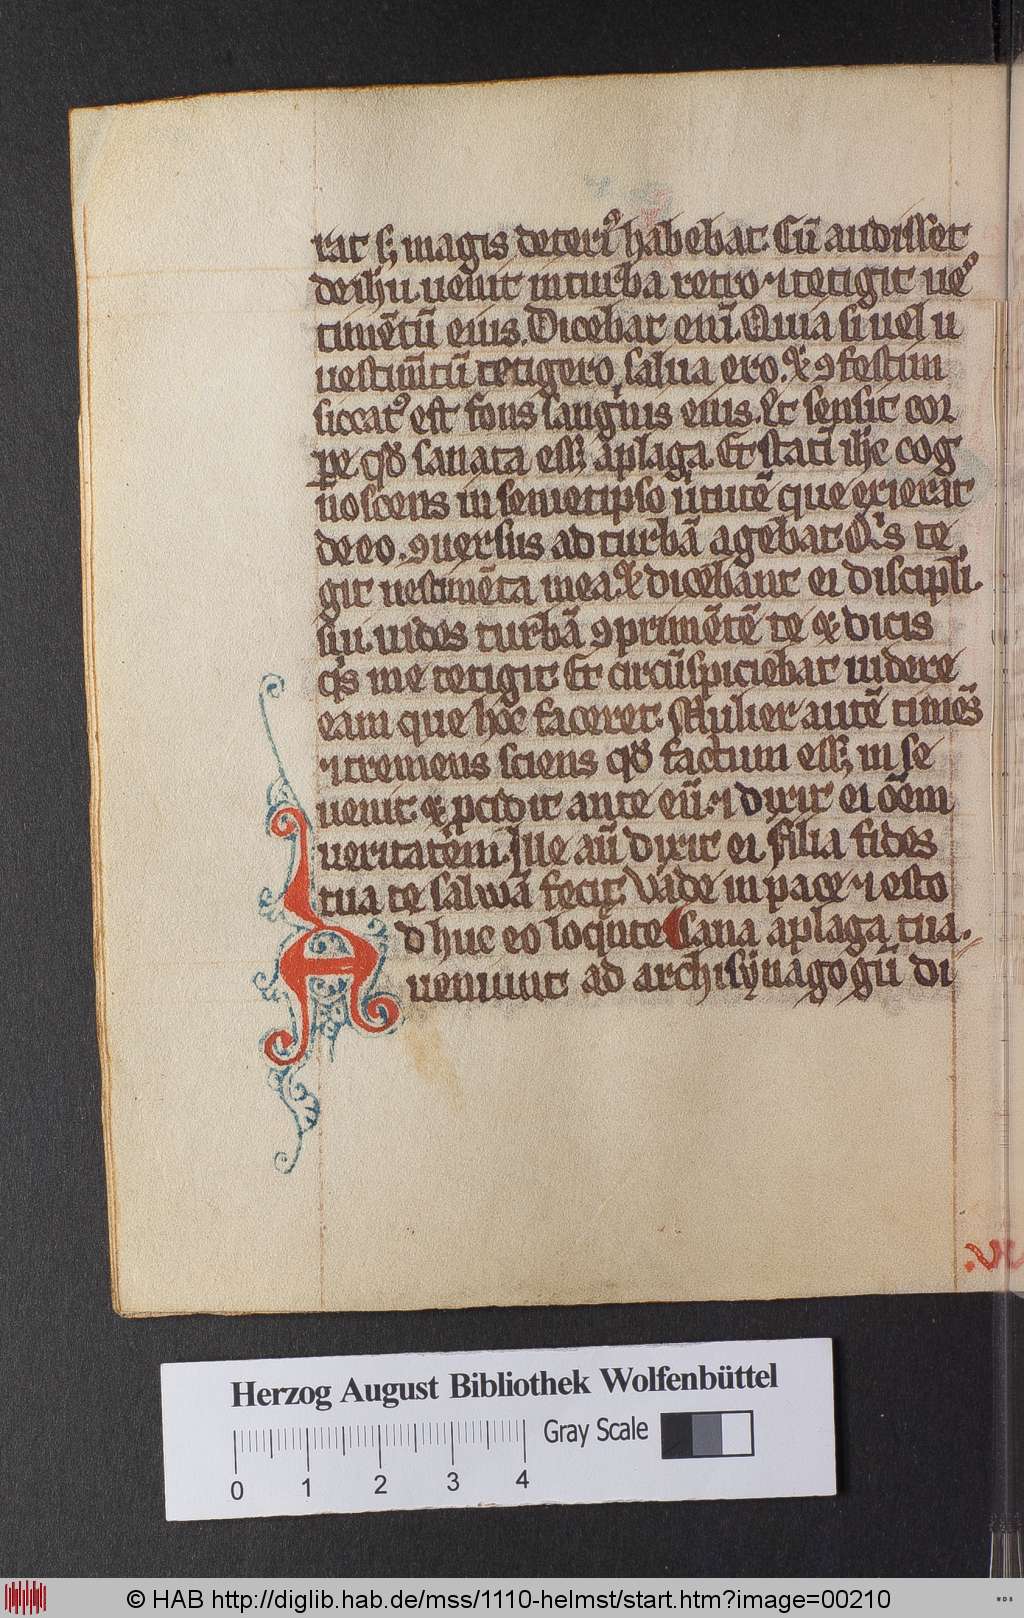 rat sꝫ magis deteriꝰ habebat. Cū audisset
de ihu. uenit in turba retro ⁊ tetigit ueſ
timētū eius. Dicebat eni. Quia si uel u
uestimtū tetigero, salua ero. & ꝯfestim
siccatꝰ est fons sanguis eius. Et sensit cor
pe qd̄ sanata essꝫ a plaga. Et statī ihc cog
noscens in semetipso ūtutē que exierat
de eo. ꝯuersus ad turbā agebat. Qis te
git uestimēta mea. & dicebant ei discipli
sui. uides turbā ꝯprimētē te & dicis
qis me tetigit. Et circūspiciebat uidere
eam que hoc faceret. Mulier autē timēs
⁊ tremens sciens qd̄ factum essꝫ in se
uenit. & pcidit ante eū. ⁊ dixit ei oēm
ueritatem. Ille aū dixit ei. Filia fides
tua te saluā fecit. Vade in pace ⁊ esto
Ad huc eo loqnte sana a plaga tua.
ueniunt ad archisynagogū di
Herzog August Bibliothek Wolfenbüttel
Gray Scale
0 1 2 3 4
© HAB http://diglib.hab.de/mss/1110-helmst/start.htm?image=00210